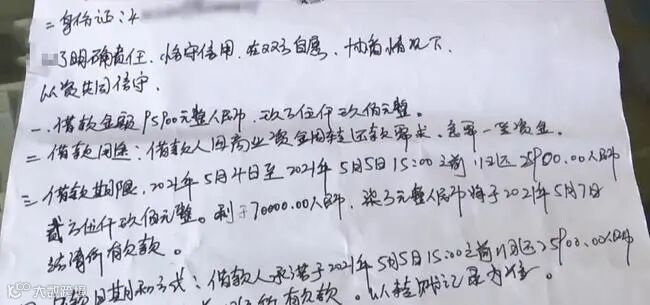 二身份证:
了明确责任、恪守信用、在双方自愿、协商情况下、
以资共同信守、
一、借款金额95900元整人民币、玖万伍仟玖佰元整。
二、借款用途:借款人因商业资金周转还款需求、急需一笔资金。
三、借款期限、2021年5月4日至2021年5月5日15:00之前归还25900.00人民币
贰万伍仟玖佰元整。剩于70000.00人民币、柒万元整人民币将于2021年5月7日
结清所有欠款。
款日期和方式:借款人承诺于2021年5月5日15:00之前归还25900.00人民币
所有欠款。以转账记录为准。
大数跨境